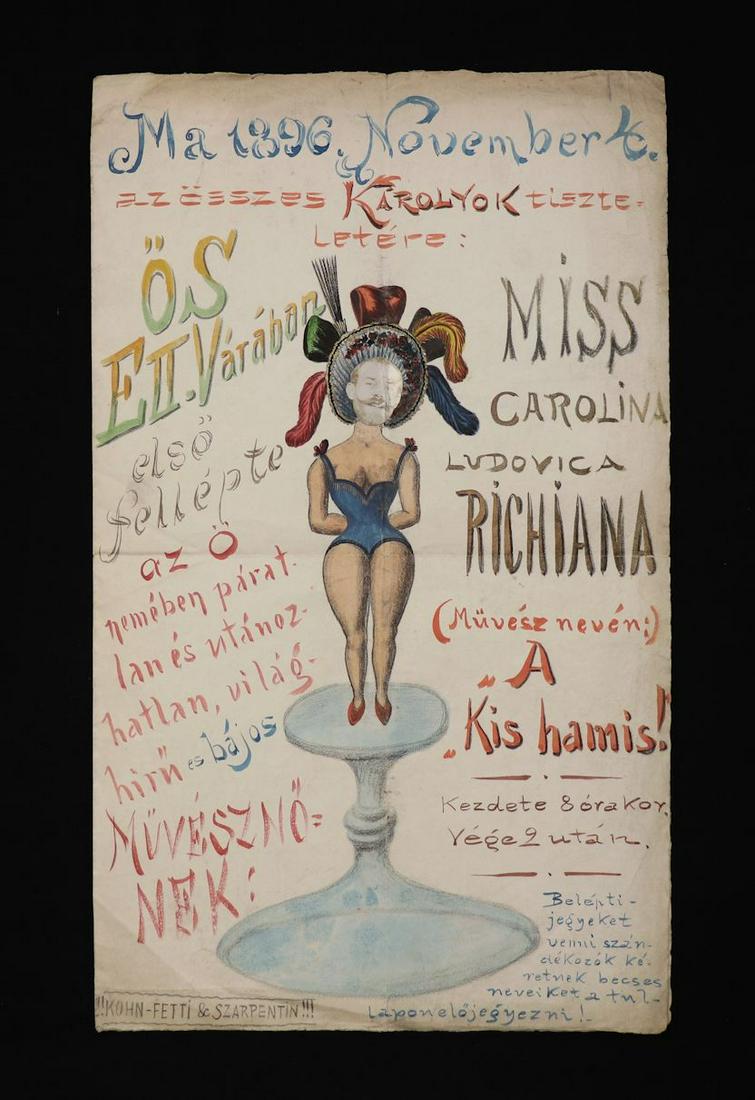 Ma 1896. November 4.
az összes KÁROLYOK tiszte-
letére:
ÖS
ETT. Várában
első
fellépte
az Ö
nemében párat-
lan és utánoz-
hatlan, világ-
hirű es bájos
MŰVÉSZNŐ=
NEK:
MISS
CAROLINA
LUDOVICA
RICHIANA
(Művész nevén:)
„A
„Kis hamis!"
Kezdete 8 órakor.
Vége 2 után.
Belépti-
jegyeket
venni szán-
dékozók ké-
retnek becses
neveiket a túl-
lapon előjegyezni!-
!!KOHN-FETTI & SZARPENTIN!!!